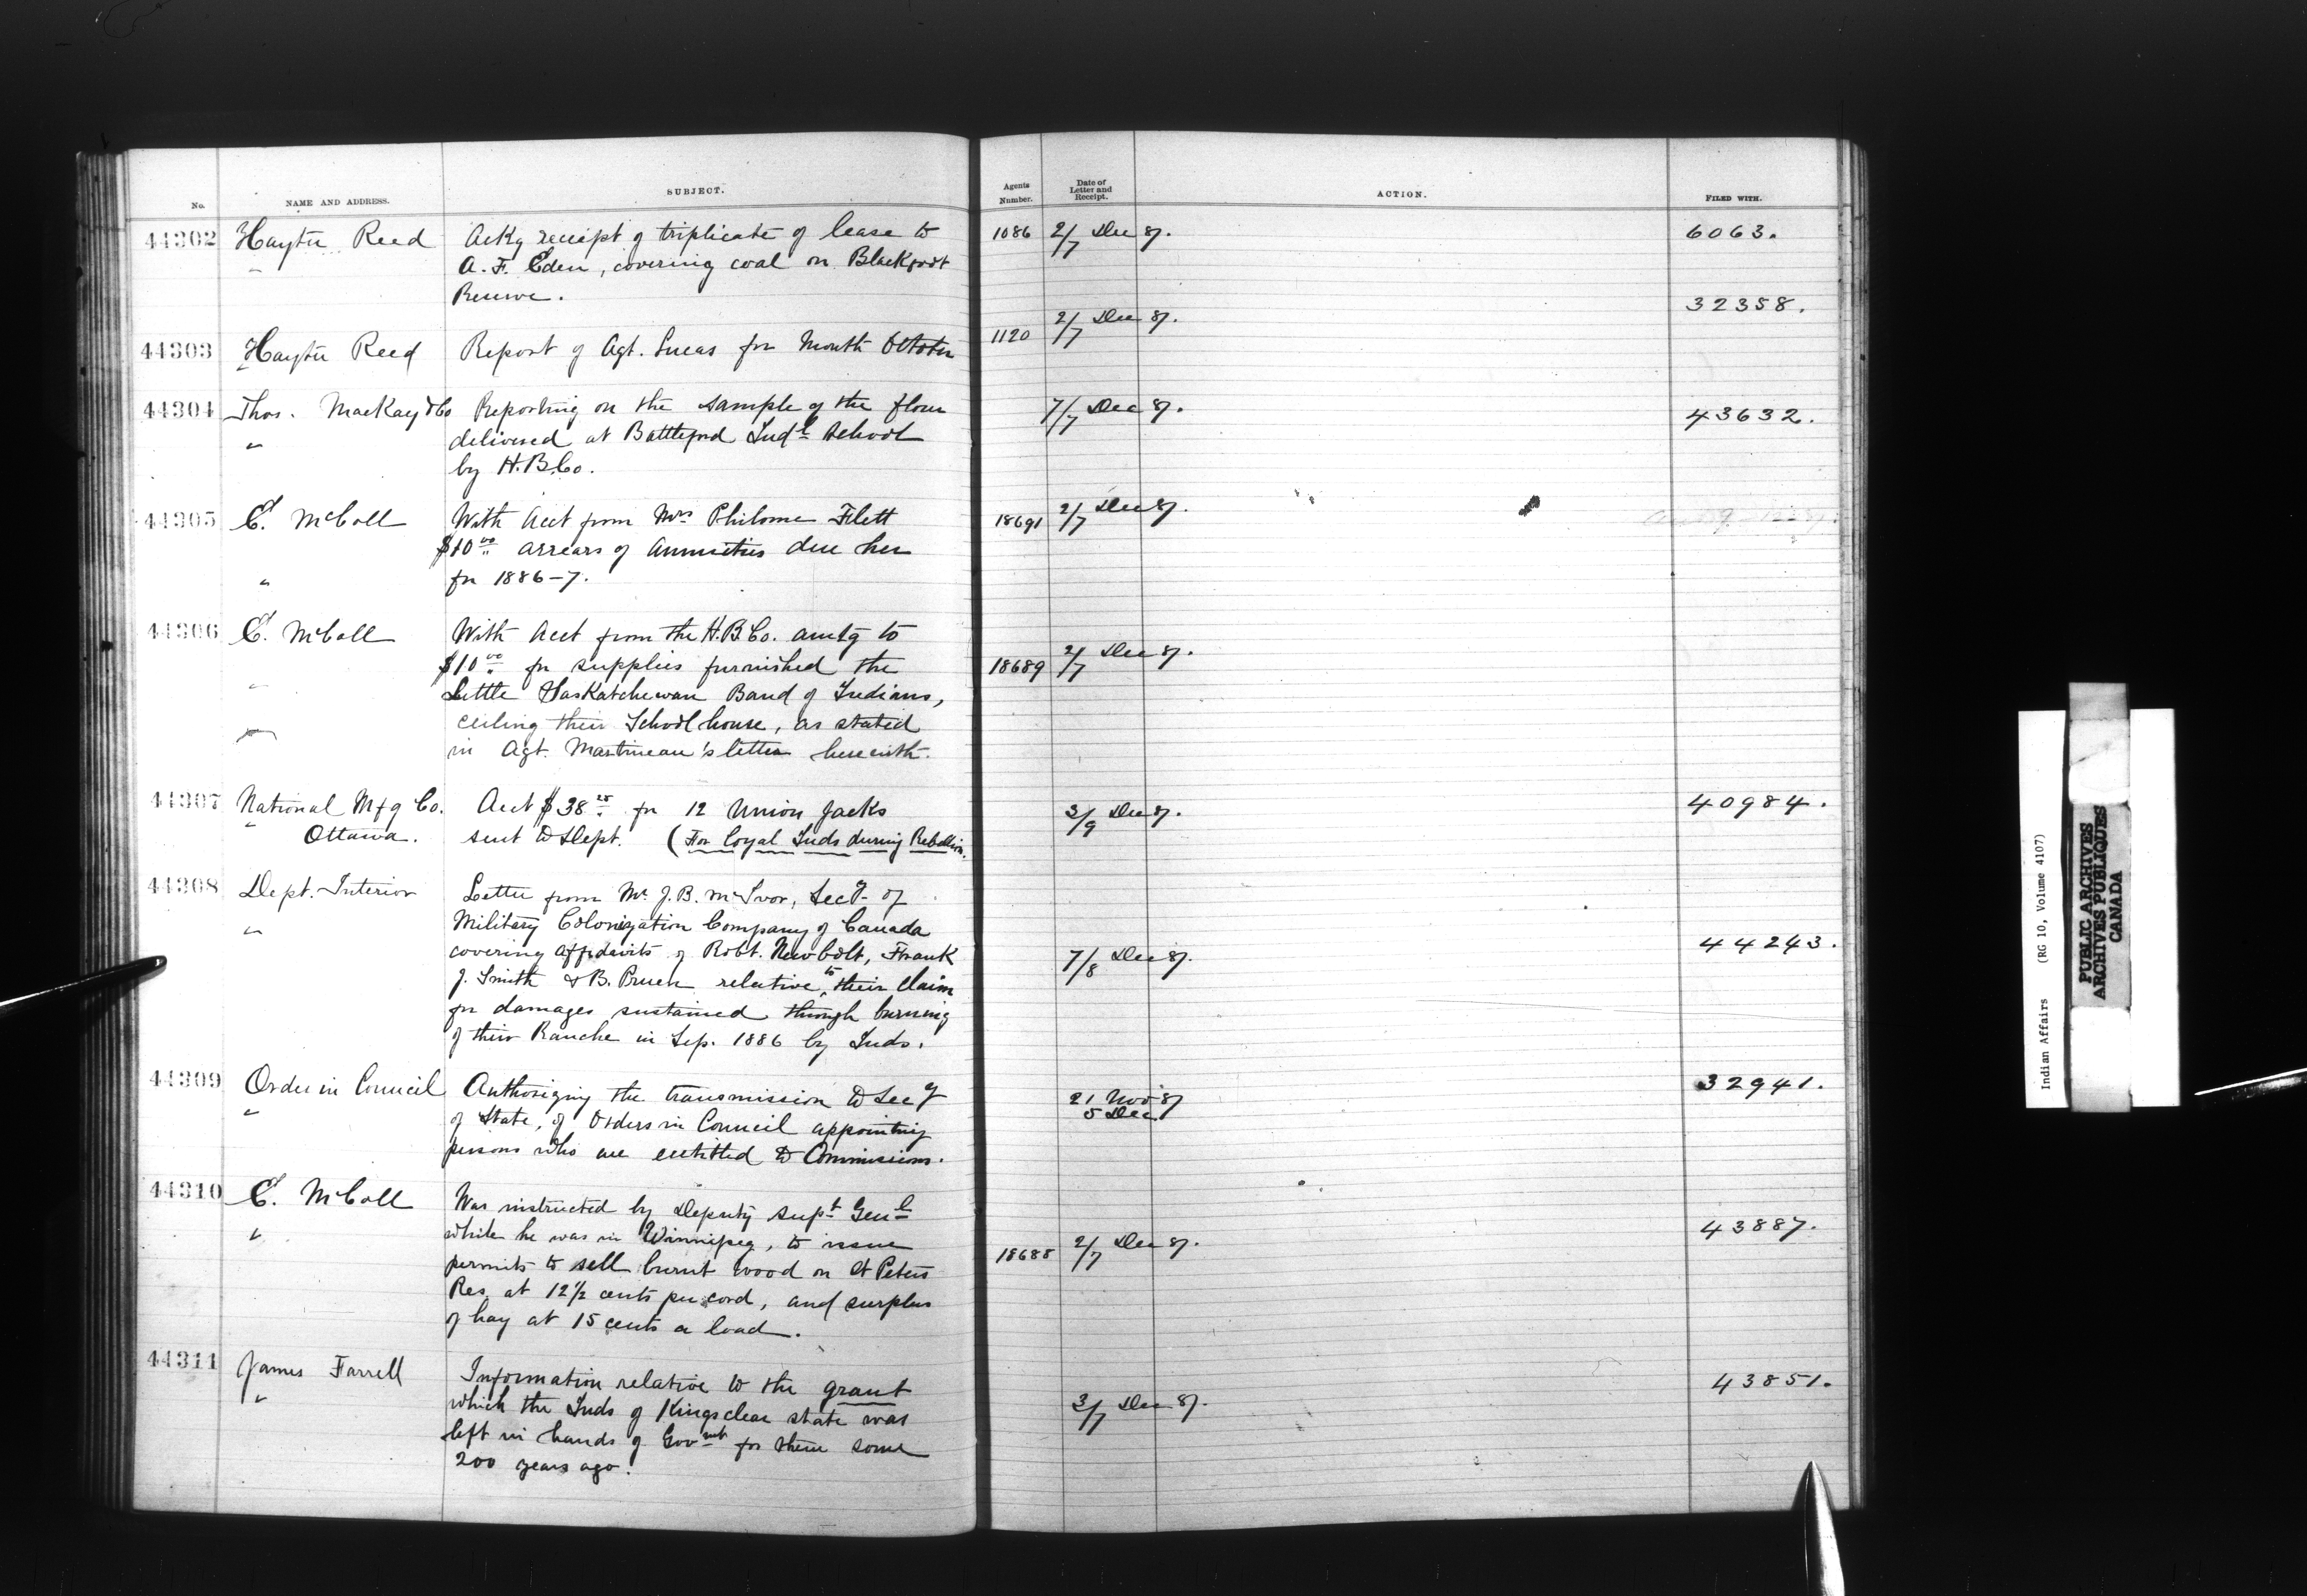 No. NAME AND ADDRESS. SUBJECT. Agents Number. Date of Letter and Receipt. ACTION. FILED WITH.
44302 Hayter Reed Ackg receipt of triplicate of lease to 1086 2/7 Dec 87. 6063.
" A. F. Eden, covering coal on Blackfoot
Reserve.
44303 Hayter Reed Report of Agt. Lucas for Month October 1120 2/7 Dec 87. 32358.
44304 Thos. MacKay & Co Reporting on the sample of the flour 7/7 Dec 87. 43632.
" delivered at Battleford Indl School
by H.B.Co.
44305 E. McColl With Acct from Mrs Philome Flett 18691 2/7 Dec 87.
$10 00 arrears of annuities due her
" for 1886-7.
44306 E. McColl With Acct from the H.B.Co. amtg to
$10 00 for supplies furnished the 18689 2/7 Dec 87.
" Little Saskatchewan Band of Indians,
ceiling their School house, as stated
" in Agt. Martineau's letter herewith.
44307 National Mfg Co. Acct $38 25 for 12 Union Jacks 3/9 Dec 87. 40984.
" Ottawa. sent to Dept. (For loyal Inds during Rebellion.
44308 Dept. Interior Letter from Mr J. B. McIvor, Secy of
" Military Colonization Company of Canada
covering affidavits of Robt. Newbolt, Frank 7/8 Dec 87. 44243.
J. Smith & B. Pruen relative to their claim
for damages sustained through burning
of their Ranche in Sep. 1886 by Inds.
44309 Order in Council Authorizing the transmission to Secy 21 Nov 87 32941.
" of State, of Orders in Council appointing 5 Dec
persons who are entitled to Commissions.
44310 E. McColl Was instructed by Deputy Supt Genl
" while he was in Winnipeg, to issue 18688 2/7 Dec 87. 43887.
permits to sell burnt wood on St Peters
Res. at 12 1/2 cents per cord, and surplus
of hay at 15 cents a load.
44311 James Farrell Information relative to the grant 43851.
" which the Inds of Kingsclear state was 3/7 Dec 87.
left in hands of Govmt for them some
200 years ago.
Indian Affairs (RG 10, Volume 4107)
PUBLIC ARCHIVES
ARCHIVES PUBLIQUES
CANADA